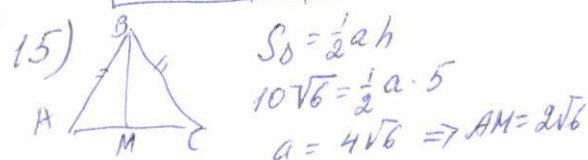 15)
B
A
M
C
S_Δ = 1/2 ah
10√6 = 1/2 a · 5
a = 4√6 => AM = 2√6